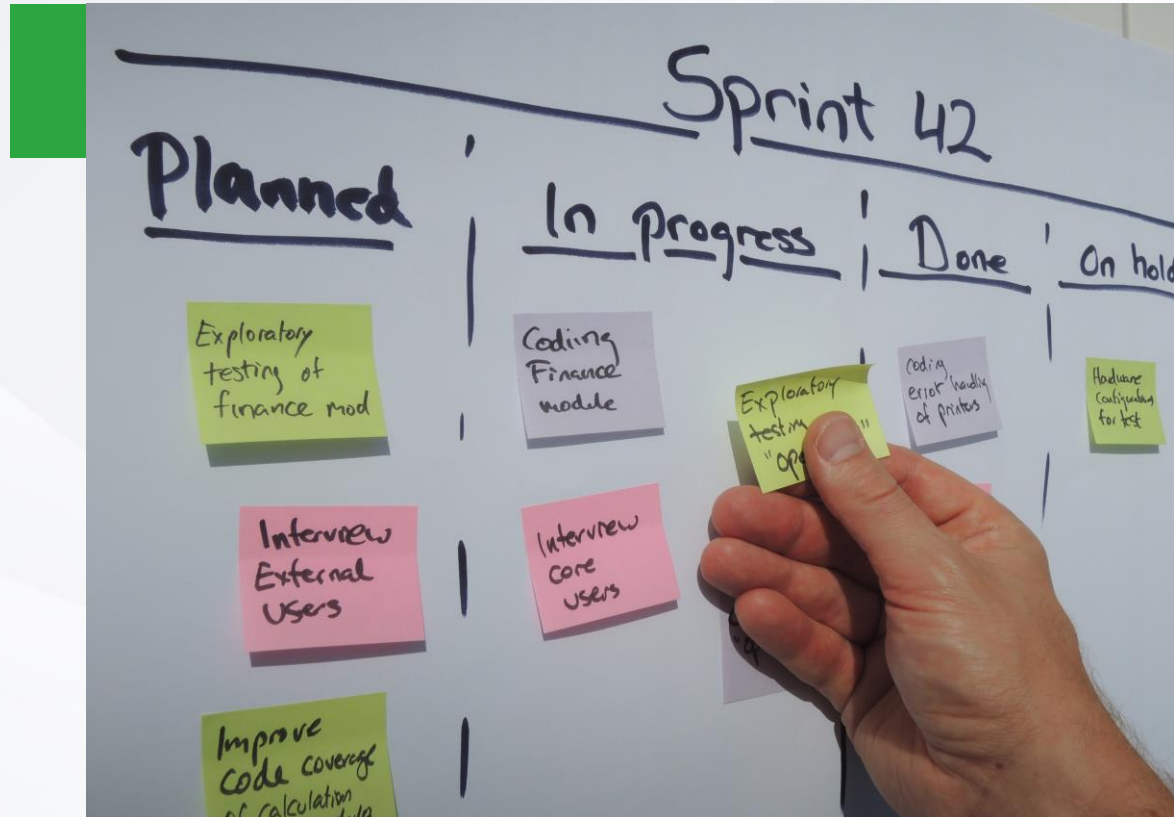 Sprint 42
Planned
In progress
Done
On hold
Exploratory
testing of
finance mod
Interview
External
Users
Improve
code coverage
of calculation
Codiing
Finance
module
Interview
core
users
Exploratory
testing
coding
error handling
of printers
Hardware
Configurations
for test